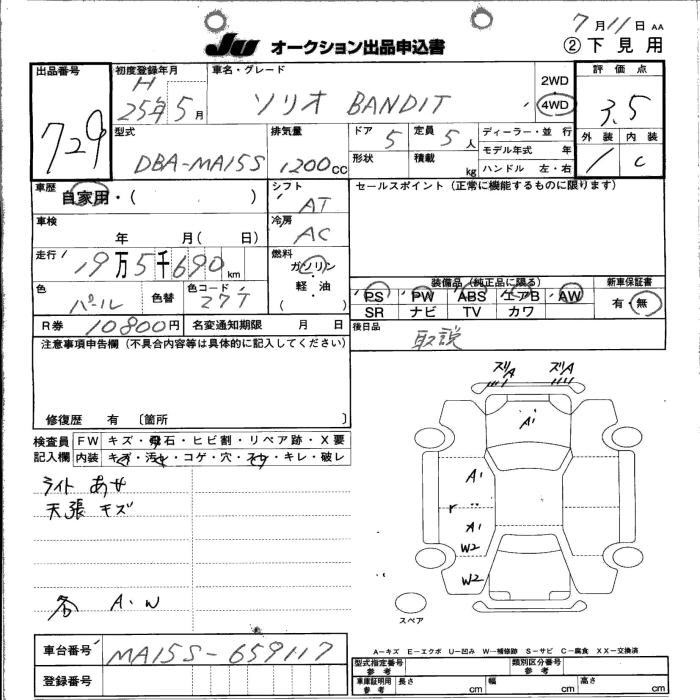 7月11日 AA
JU オークション出品申込書 ②下見用
出品番号 初度登録年月 車名・グレード 評価点
729
H 25年5月
ソリオ BANDIT
2WD
4WD
3.5
外装 内装
1 C
型式 排気量 ドア 定員 ディーラー・並行
DBA-MA15S 1200cc 5 5人
形状 積載 kg
モデル年式 年
ハンドル 左・右
車歴 自家用・( )
シフト AT
セールスポイント(正常に機能するものに限ります)
車検 年 月( 日)
冷房 AC
走行 19万5千690km
燃料 ガソリン・軽油・( )
色 パール 色替 色コード Z7T
装備品(純正品に限る) 新車保証書
PS PW ABS エアB AW
SR ナビ TV カワ
有・無
R券 10800円 名変通知期限 月 日
後日品 取説
注意事項申告欄(不具合内容等は具体的に記入してください)
修復歴 有 〔箇所 〕
検査員記入欄
FW キズ・飛石・ヒビ割・リペア跡・X要
内装 キズ・汚れ・コゲ・穴・スレ・キレ・破レ
ライト あせ
天張 キズ
各 A.W
ズリA ズリA
A1
A1
r
A1
W2
W2
スペア
A−キズ E−エクボ U−凹み W−補修跡 S−サビ C−腐食 XX−交換済
車台番号 MA15S-659117
登録番号
型式指定番号 参考 類別区分番号 参考
車庫証明用 参考 長さ cm 幅 cm 高さ cm